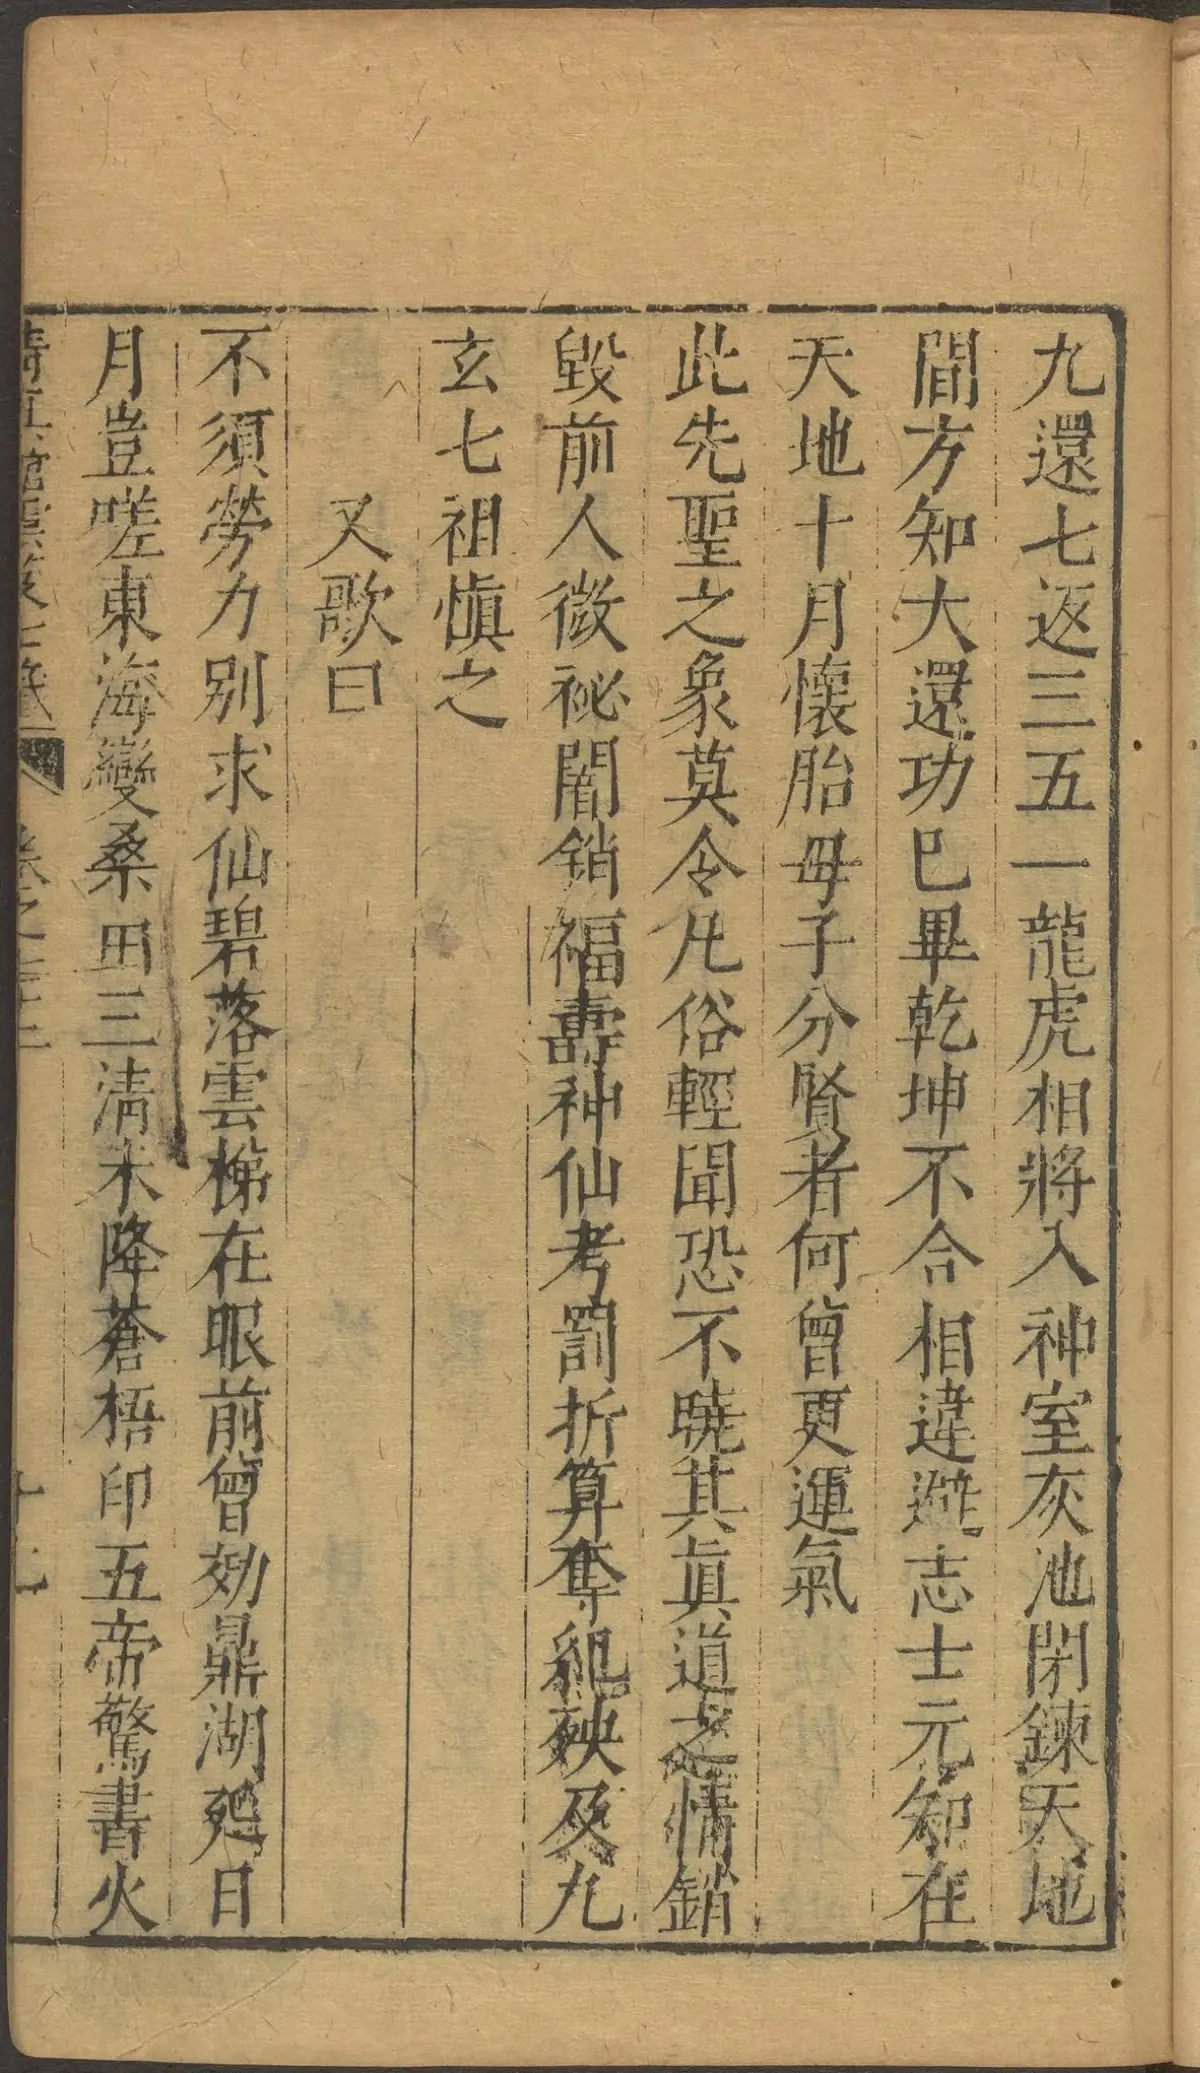 九還七返三五一龍虎相將入神室灰池閉鍊天地
間方知大還功巳畢乾坤不合相違避志士元知在
天地十月懷胎母子分賢者何曾更運氣
此先聖之象莫令凡俗輕聞恐不曉其眞道之情銷
毀前人微祕闇銷福壽神仙考罰折算奪紀殃及九
玄七祖愼之
又歌曰
不須勞力別求仙碧落雲梯在眼前曾効鼎湖日
月豈嗟東海變桑田三淸未降蒼梧印五帝驚書火
卷之
十七